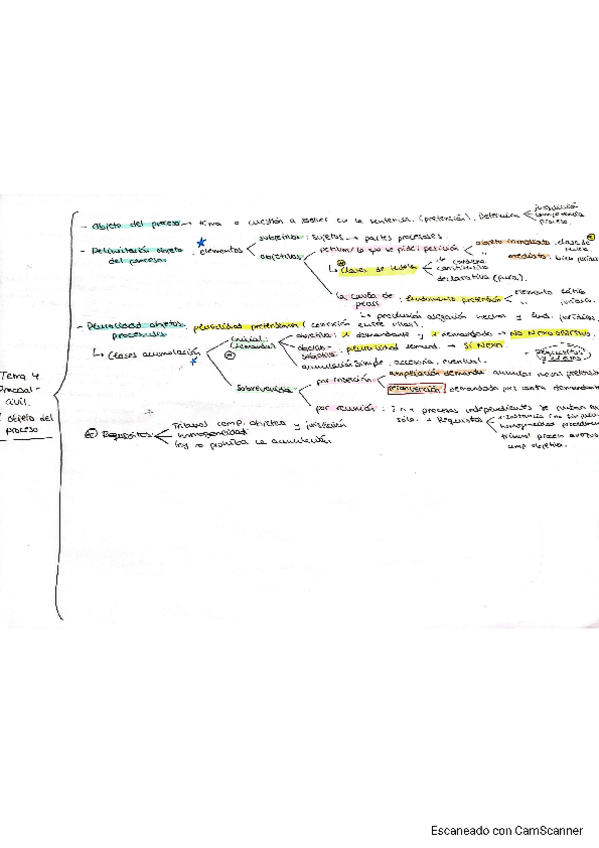 - Objeto del proceso → tema o cuestión a resolver en la sentencia. (pretensión). Determina
jurisdicción
competencia
proceso.
- Delimitación objeto del proceso. elementos
subjetivos: sujetos → partes procesales.
objetivos
petitum/lo que se pide/petición
objeto inmediato: clase de
" mediato: bien jurídico
Clases de tutela
condena
constitutiva
declarativa (pura).
la causa de pedir: fundamento pretensión
elemento fáctico
" jurídico.
- Pluralidad objetos procesales. pluralidad pretensiones (conexión entre ellas).
Clases acumulación
inicial: (demanda)
objetiva: 1 demandante y 1 demandado → NO NEXO OBJETIVO.
objetivo-subjetiva: pluralidad demand. → SÍ NEXO
acumulación simple, accesoria, eventual.
sobrevenida
por inserción
ampliación demanda: acumular nuevas
reconvención: demandado por contra demandante
por reunión: 2 o + procesos independientes se
solo. + Requisitos
homogeneidad
comp objetiva.
Requisitos
Tribunal comp. objetiva y jurisdicción
homogeneidad
ley no prohíba la acumulación
Tema 4
Procesal-
civil.
objeto del
proceso
Escaneado con CamScanner